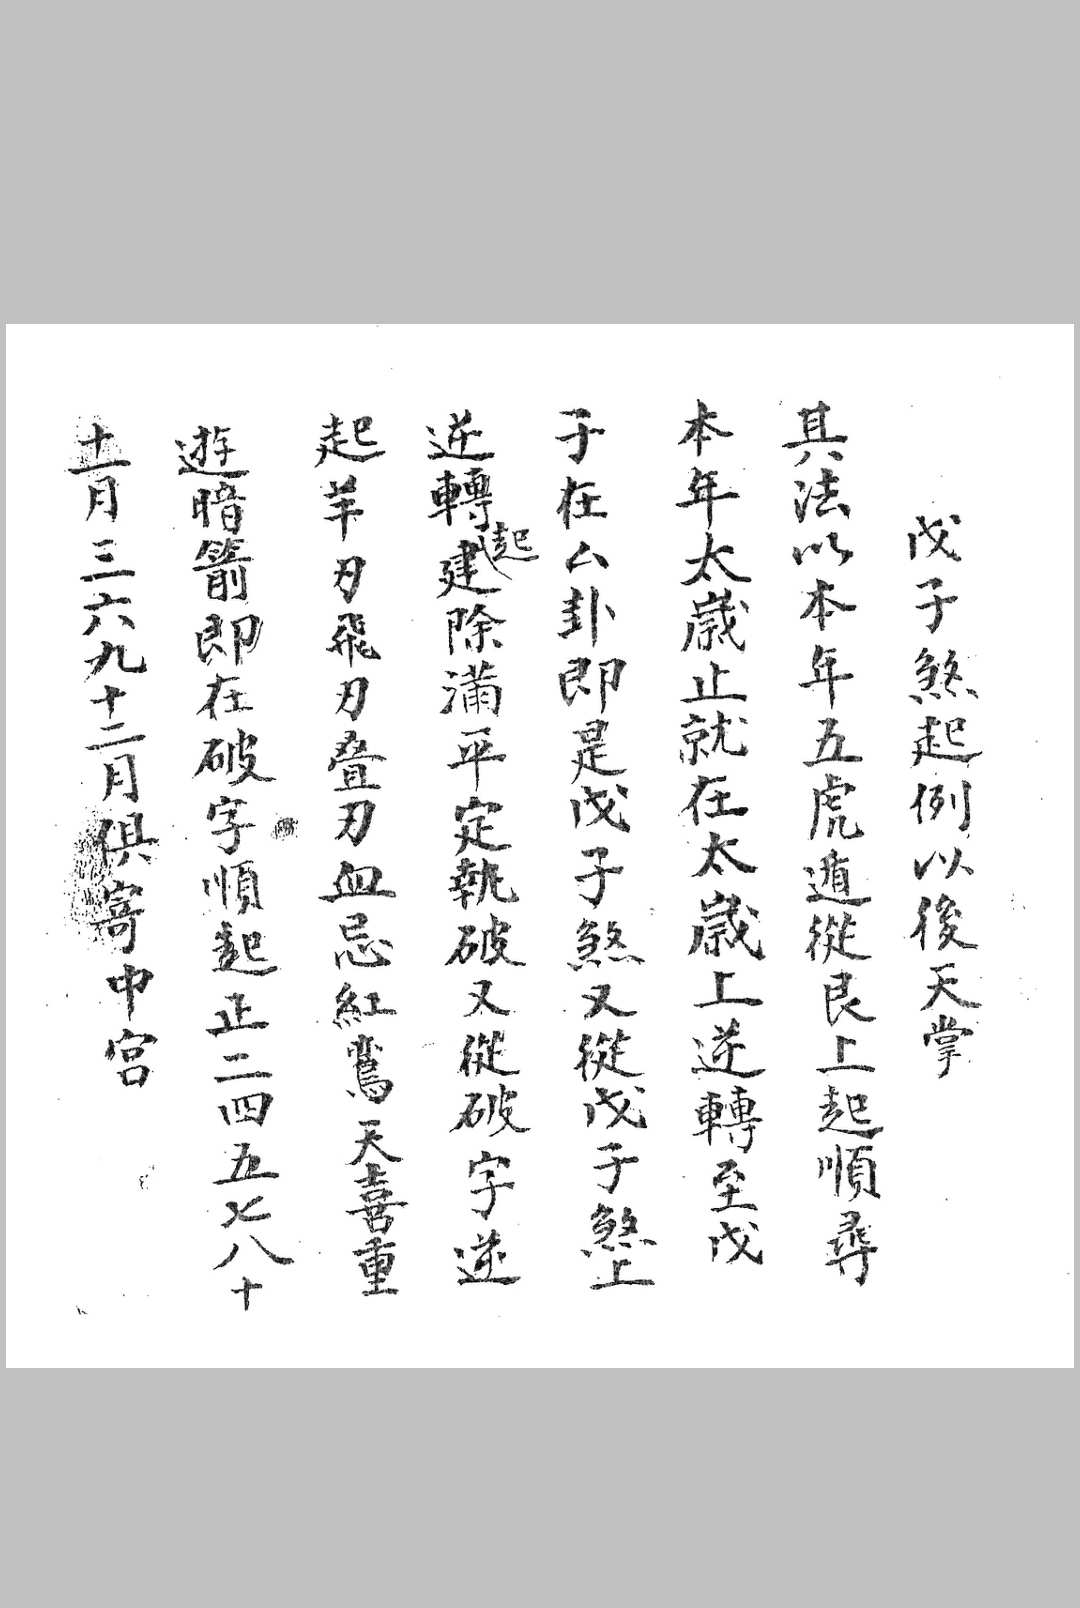 戊子煞起例以後天掌
其法以本年五虎遁從艮上起順尋
本年太歲止就在太歲上逆轉至戊
子在厶卦即是戊子煞又從戊子煞上
逆轉起建除滿平定執破又從破字逆
起羊刃飛刃叠刃血忌紅鸞天喜重
遊暗箭即在破字順起正二四五七八十
十一月三六九十二月俱寄中宮